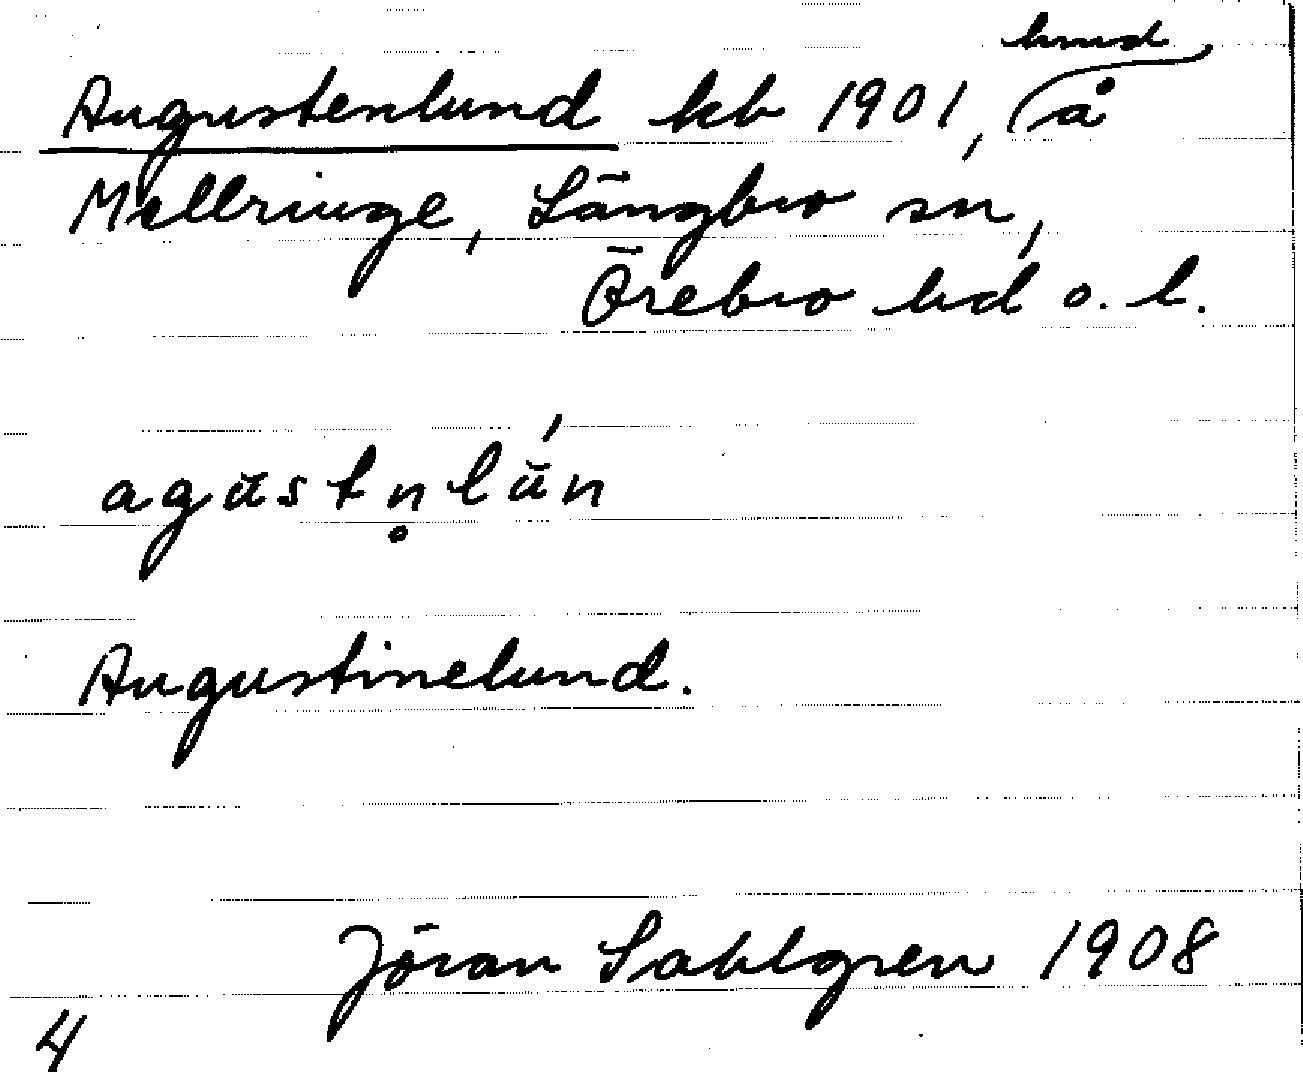 Augustenlund kb 1901, å
Mellringe, Längbro sn,
Örebro hd o. l.
agŭstn̥lŭ́n
Augustinelund.
Jöran Sahlgren 1908
4